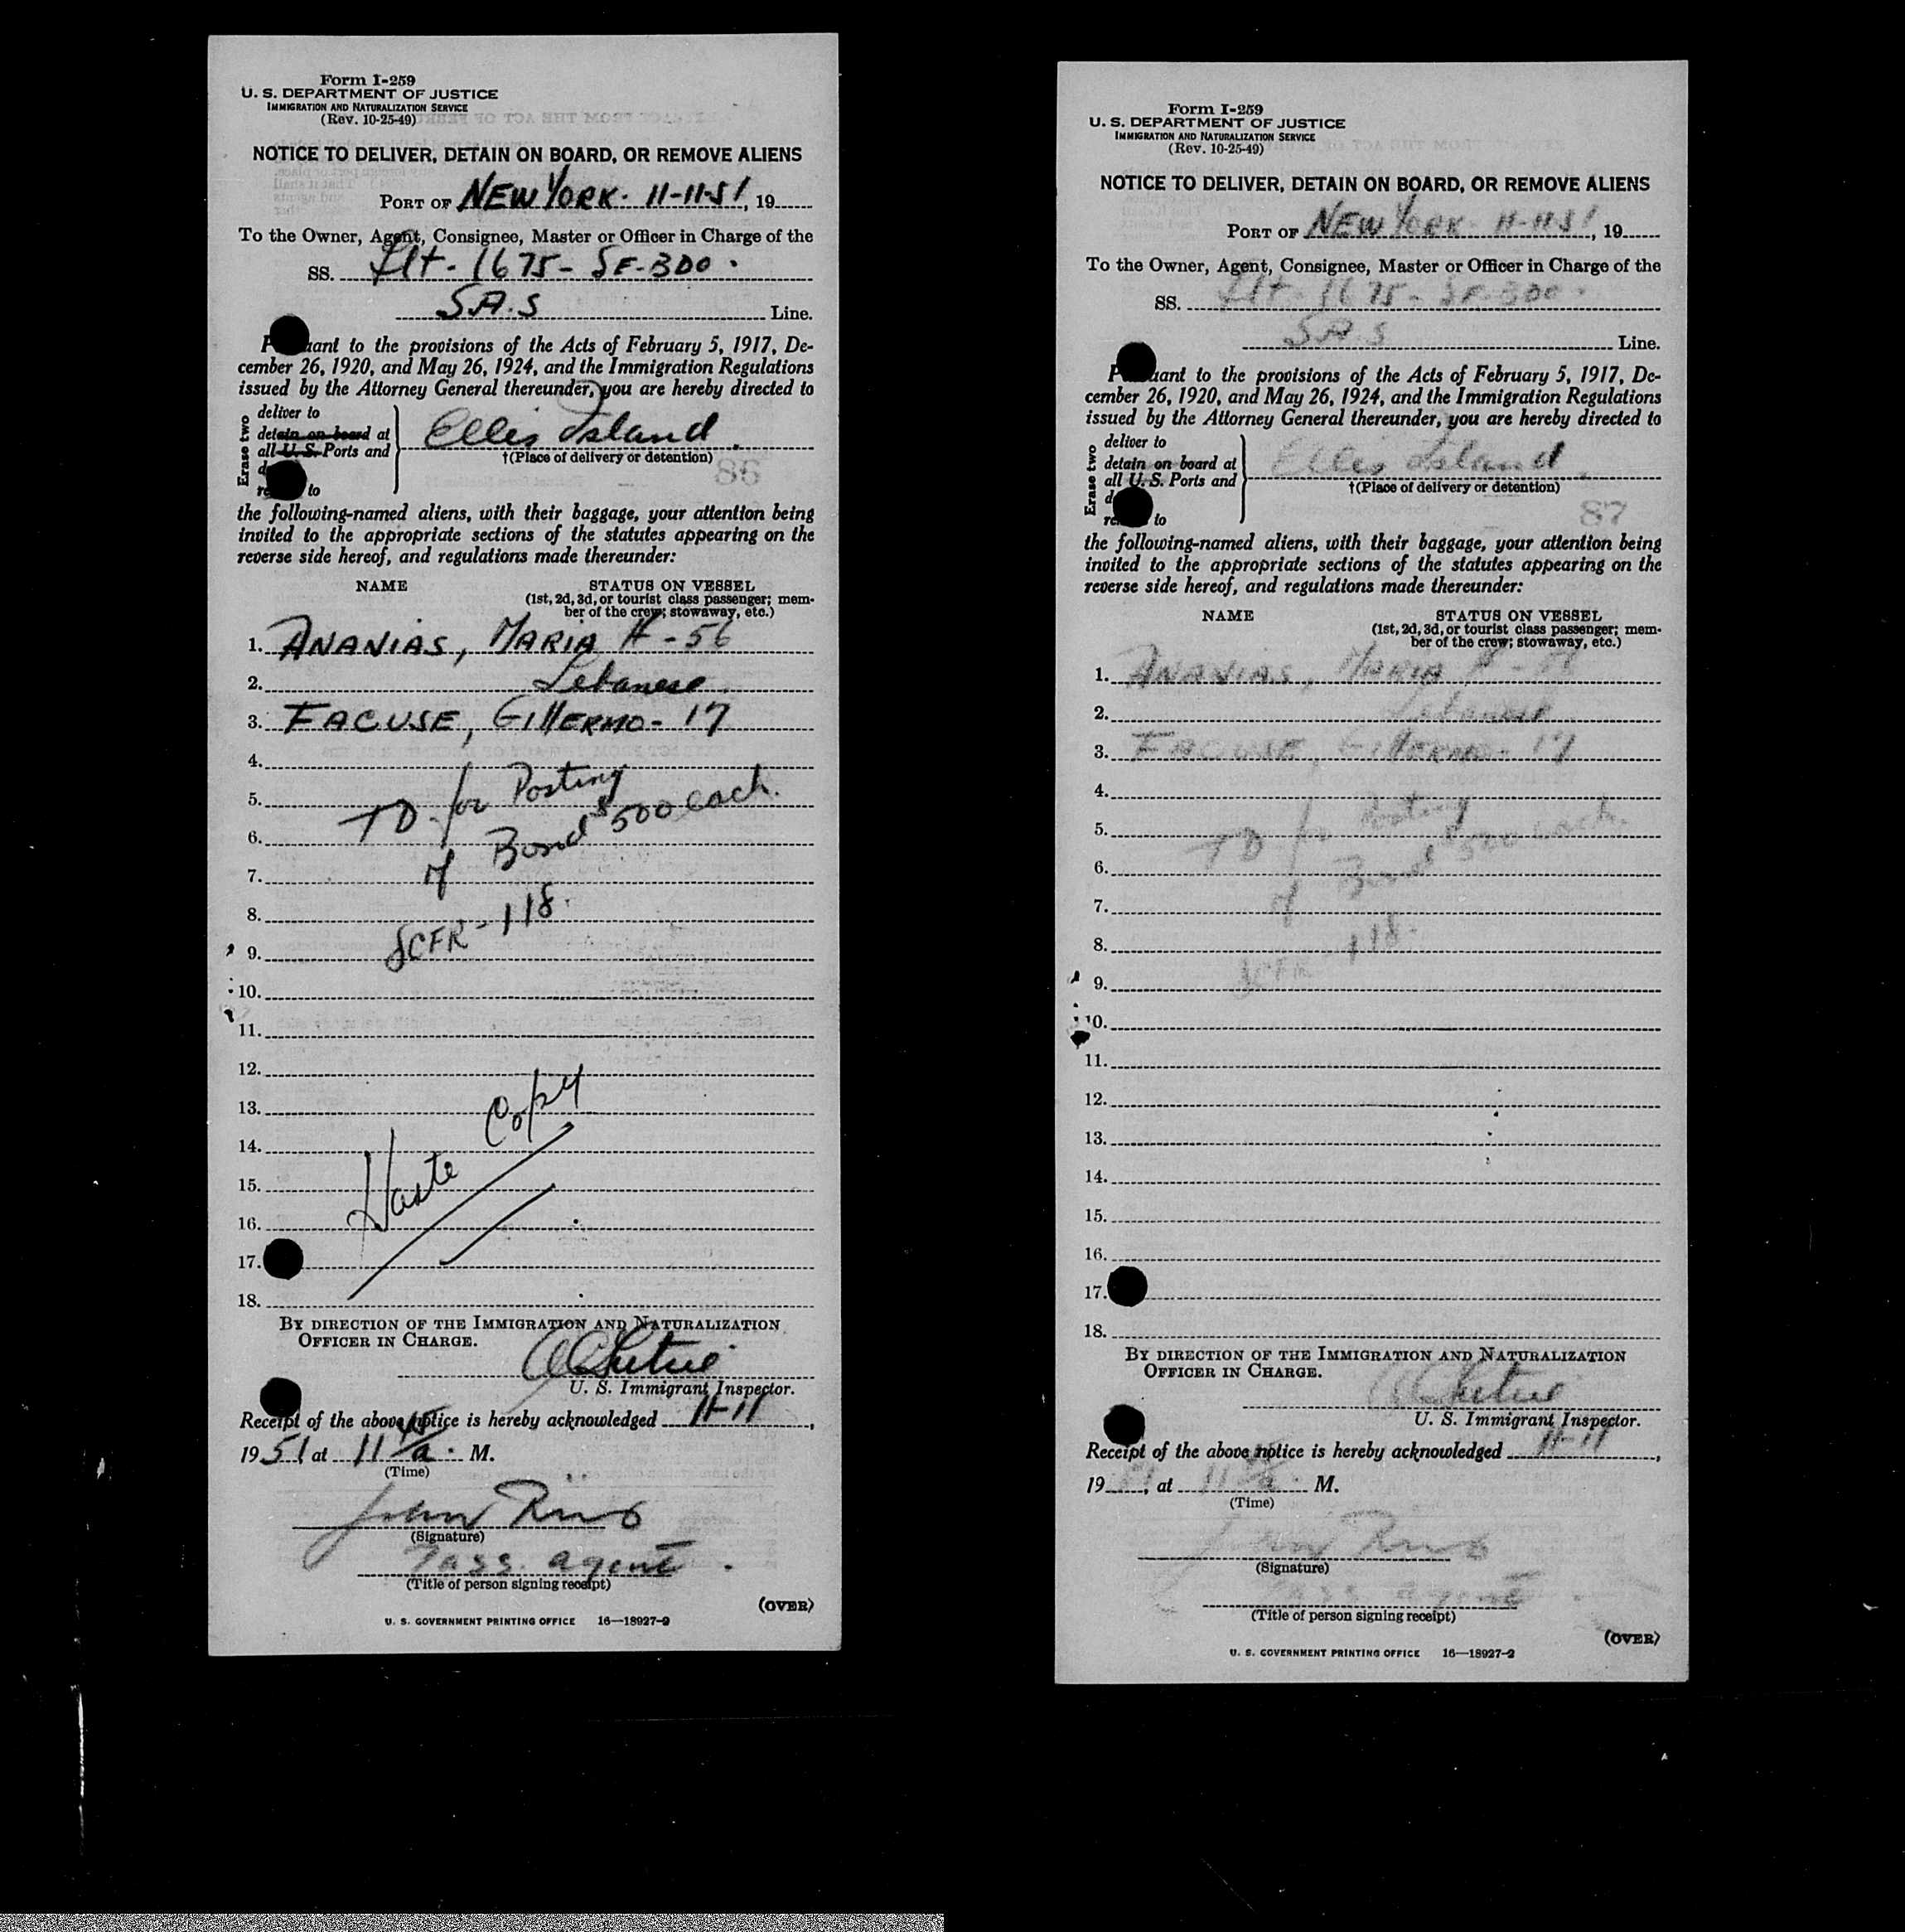 Form I-259
U. S. DEPARTMENT OF JUSTICE
IMMIGRATION AND NATURALIZATION SERVICE
(Rev. 10-25-49)
NOTICE TO DELIVER, DETAIN ON BOARD, OR REMOVE ALIENS
PORT OF NEW YORK. 11-11-51, 19
To the Owner, Agent, Consignee, Master or Officer in Charge of the
SS. Flt-1675-SE-BDO.
S.A.S Line.
uant to the provisions of the Acts of February 5, 1917, De-
cember 26, 1920, and May 26, 1924, and the Immigration Regulations
issued by the Attorney General thereunder, you are hereby directed to
Erase two
deliver to
detain on board at
all U. S. Ports and
to
Ellis Island.
†(Place of delivery or detention)
86
the following-named aliens, with their baggage, your attention being
invited to the appropriate sections of the statutes appearing on the
reverse side hereof, and regulations made thereunder:
NAME STATUS ON VESSEL
(1st, 2d, 3d, or tourist class passenger; mem-
ber of the crew; stowaway, etc.)
1. ANANIAS, MARIA H-56
2. Lebanese
3. FACUSE, GIllERMO-17
4.
5. TD for Posting
6. of Bond $500 each.
7.
8. 8CFR-118.
9.
10.
11.
12.
13.
14.
15. Haste Copy
16.
17.
18.
BY DIRECTION OF THE IMMIGRATION AND NATURALIZATION
OFFICER IN CHARGE.
U. S. Immigrant Inspector.
Receipt of the above notice is hereby acknowledged 11-11,
1951 at 11 45 a. M.
(Time)
John
(Signature)
Pass. agent.
(Title of person signing receipt)
(OVER)
U. S. GOVERNMENT PRINTING OFFICE 16—18927-2
Form I-259
U. S. DEPARTMENT OF JUSTICE
IMMIGRATION AND NATURALIZATION SERVICE
(Rev. 10-25-49)
NOTICE TO DELIVER, DETAIN ON BOARD, OR REMOVE ALIENS
PORT OF NEW YORK 11-11-51, 19
To the Owner, Agent, Consignee, Master or Officer in Charge of the
SS. Flt-1675-SE-BDO.
S.A.S Line.
uant to the provisions of the Acts of February 5, 1917, De-
cember 26, 1920, and May 26, 1924, and the Immigration Regulations
issued by the Attorney General thereunder, you are hereby directed to
Erase two
deliver to
detain on board at
all U. S. Ports and
to
Ellis Island.
†(Place of delivery or detention)
87
the following-named aliens, with their baggage, your attention being
invited to the appropriate sections of the statutes appearing on the
reverse side hereof, and regulations made thereunder:
NAME STATUS ON VESSEL
(1st, 2d, 3d, or tourist class passenger; mem-
ber of the crew; stowaway, etc.)
1. ANANIAS, MARIA H-56
2. Lebanese
3. FACUSE, GIllERMO-17
4.
5. TD for Posting
6. of Bond $500 each.
7.
8. 8CFR-118.
9.
10.
11.
12.
13.
14.
15.
16.
17.
18.
BY DIRECTION OF THE IMMIGRATION AND NATURALIZATION
OFFICER IN CHARGE.
U. S. Immigrant Inspector.
Receipt of the above notice is hereby acknowledged 11-11,
1951, at 11 45 a. M.
(Time)
John
(Signature)
Pass agent.
(Title of person signing receipt)
(OVER)
U. S. GOVERNMENT PRINTING OFFICE 16—18927-2